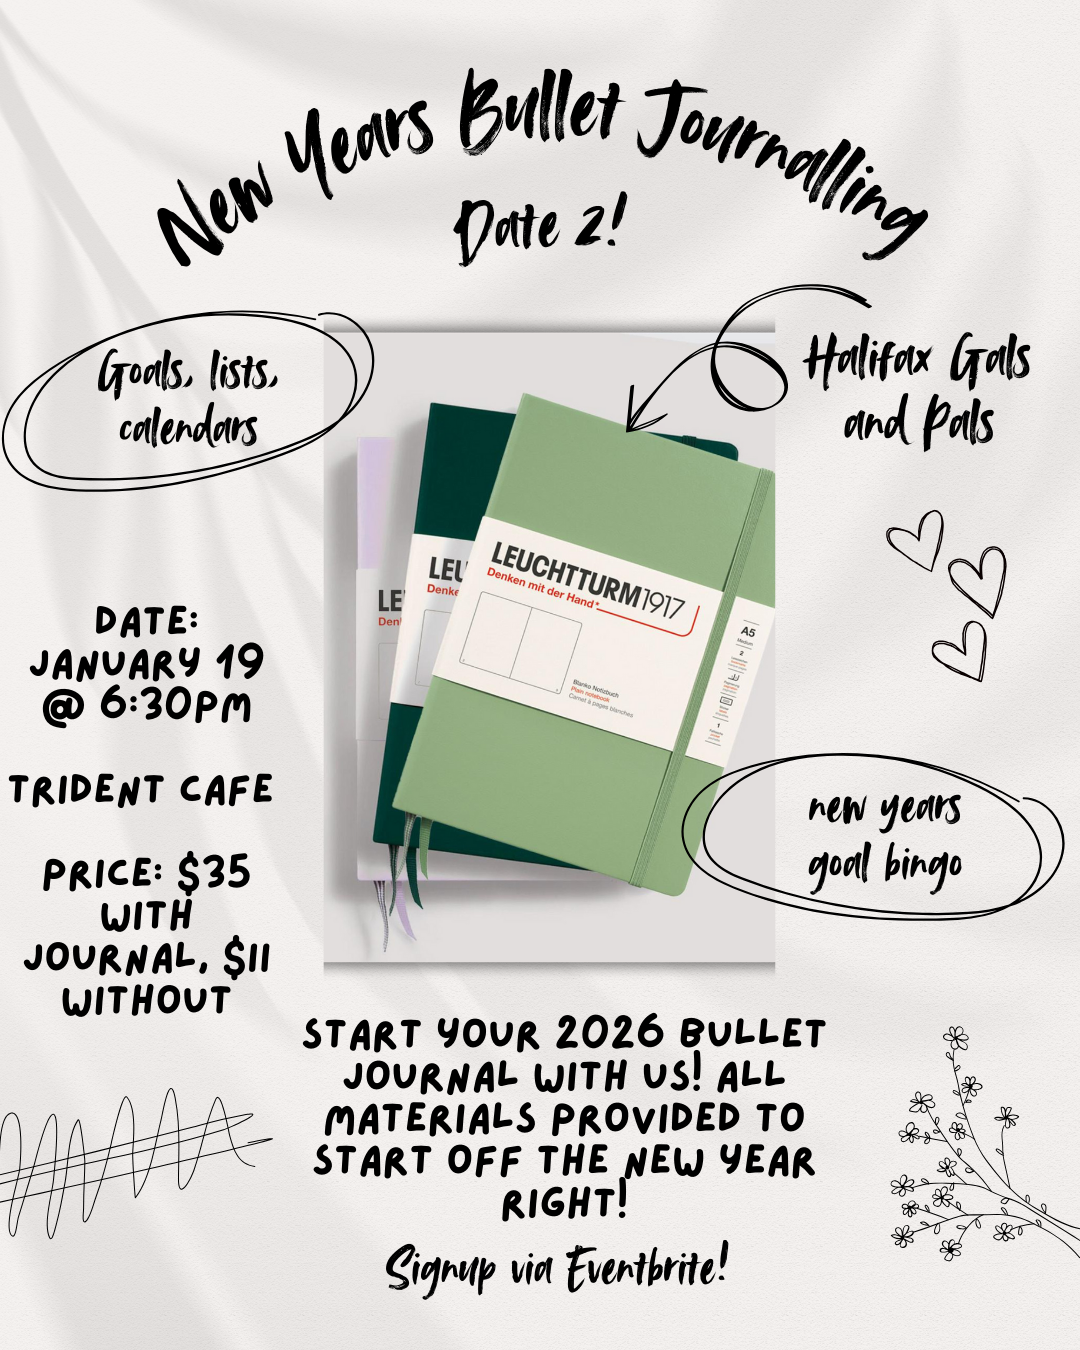 New Years Bullet Journalling
Date 2!
Goals, lists,
calendars
Halifax Gals
and Pals
LEUCHTTURM1917
Denken mit der Hand*
Blanko Notizbuch
Plain notebook
Carnet à pages blanches
A5
Medium
2
1
LEU
Denke
LE
Den
DATE:
JANUARY 19
@ 6:30PM
TRIDENT CAFE
PRICE: $35
WITH
JOURNAL, $11
WITHOUT
new years
goal bingo
START YOUR 2026 BULLET
JOURNAL WITH US! ALL
MATERIALS PROVIDED TO
START OFF THE NEW YEAR
RIGHT!
Signup via Eventbrite!